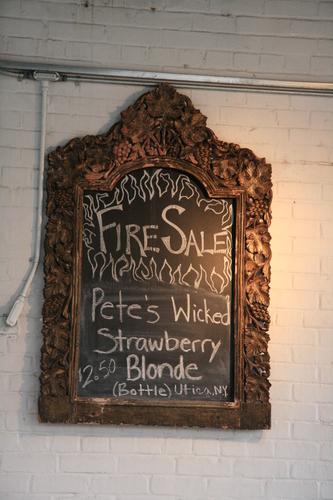 Fire Sale
Pete's Wicked
Strawberry
$2.50 Blonde
(Bottle) Utica, NY